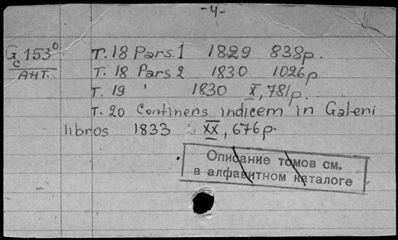 -4-
Gc 153° т. 18 Pars. 1 1829 838р.
АНТ. т. 18 Pars 2 1830 1026р
т. 19 " 1830 X, 781р.
т. 20 Continens indicem in Galeni
libros 1833 XX, 676р.
Описание томов см.
в алфавитном каталоге